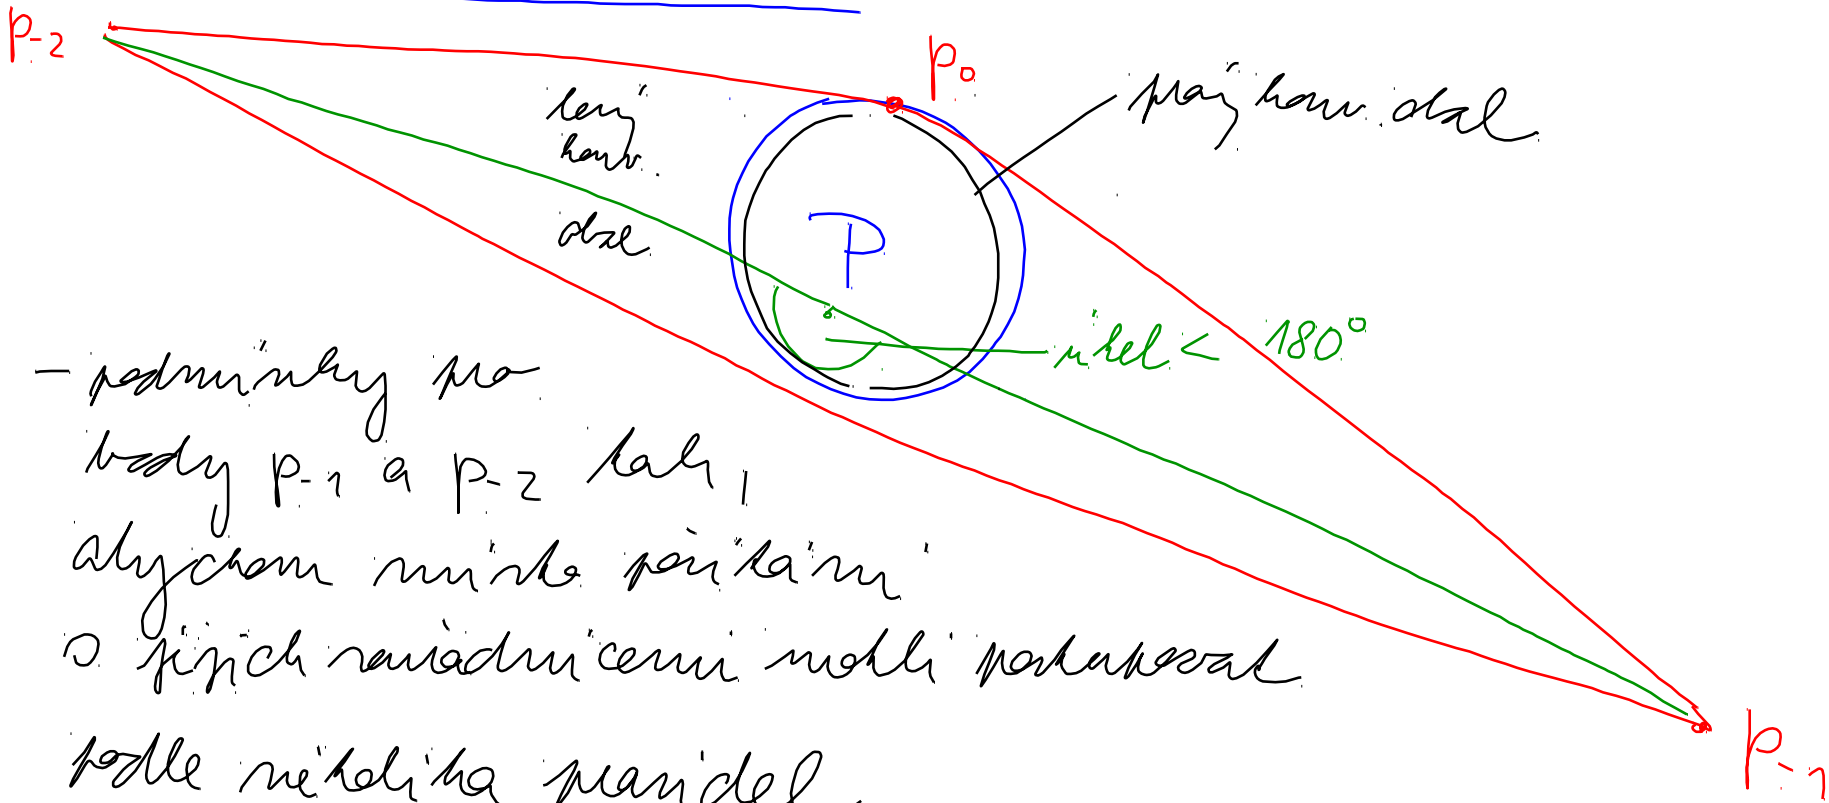 p-2
p0
levý
konv.
obal
pravý konv. obal
P
úhel < 180°
- podmínky pro
body p-1 a p-2 tak,
abychom místo počítání
s jejich souřadnicemi mohli postupovat
podle několika pravidel.
p-1